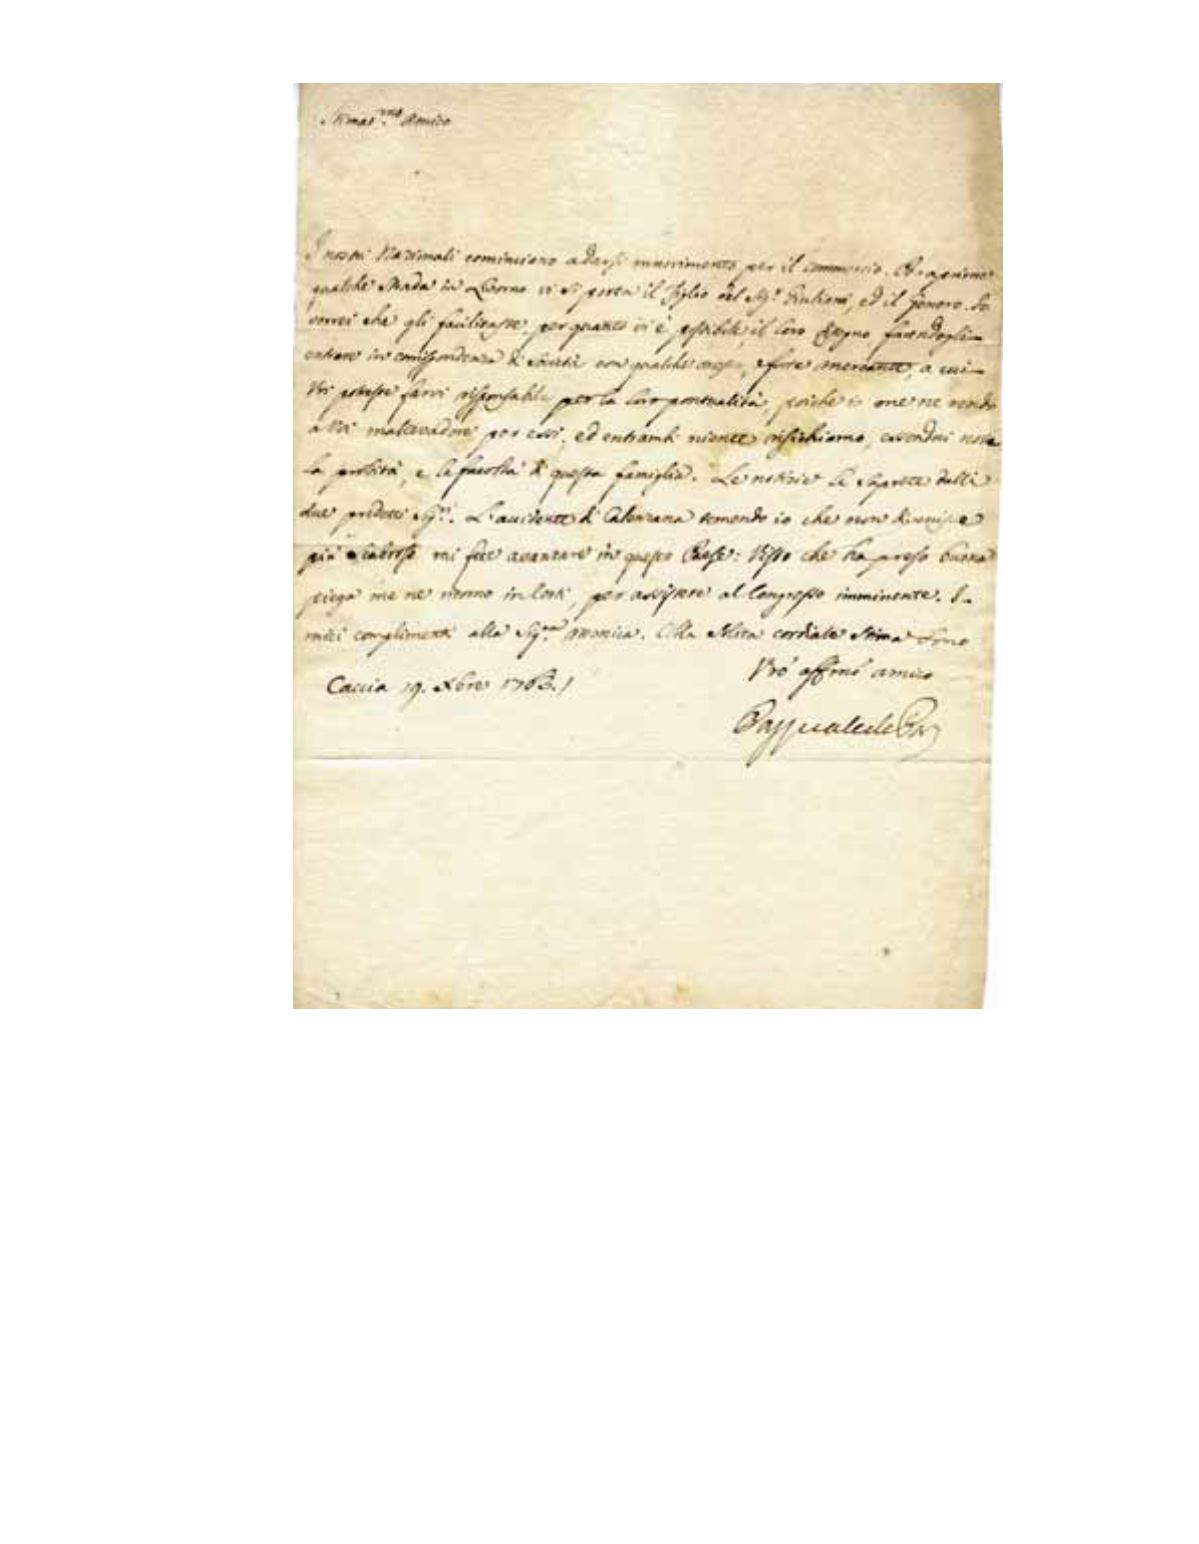 Stimat.mo Amico
I nostri Nazionali cominciano a darsi muovimento per il commercio. Ad aprirne
qualche strada in Livorno vi si porta il figlio del Sig.r Giuliani, ed il genero. Io
vorrei che gli facilitaste, per quanto vi è possibile, il loro facendogli
entrare in corrispondenza di Società con qualche, e forte mercante, a cui
Voi poteste farvi risponsabile per la loro pontualità, poiche io me ne rendo
a Voi mallevadore per essi, ed entrambi niente rischiamo, essendoci nota
la probità, e le facoltà di questa famiglia. Le notizie le saprete dalli
due predetti Sig.ri. L'accidente di Calenzana temendo io che non divenisse
più scabroso mi fece avanzare in questo Paese: Visto che ha preso buona
piega me ne ritorno in Corti, per assistere al Congresso imminente. I
miei complimenti alla Sig.ra Monica. Colla solita cordiale stima sono
Vro affmo amico
Caccia 19. Xbre 1763./
Pasquale de Paoli